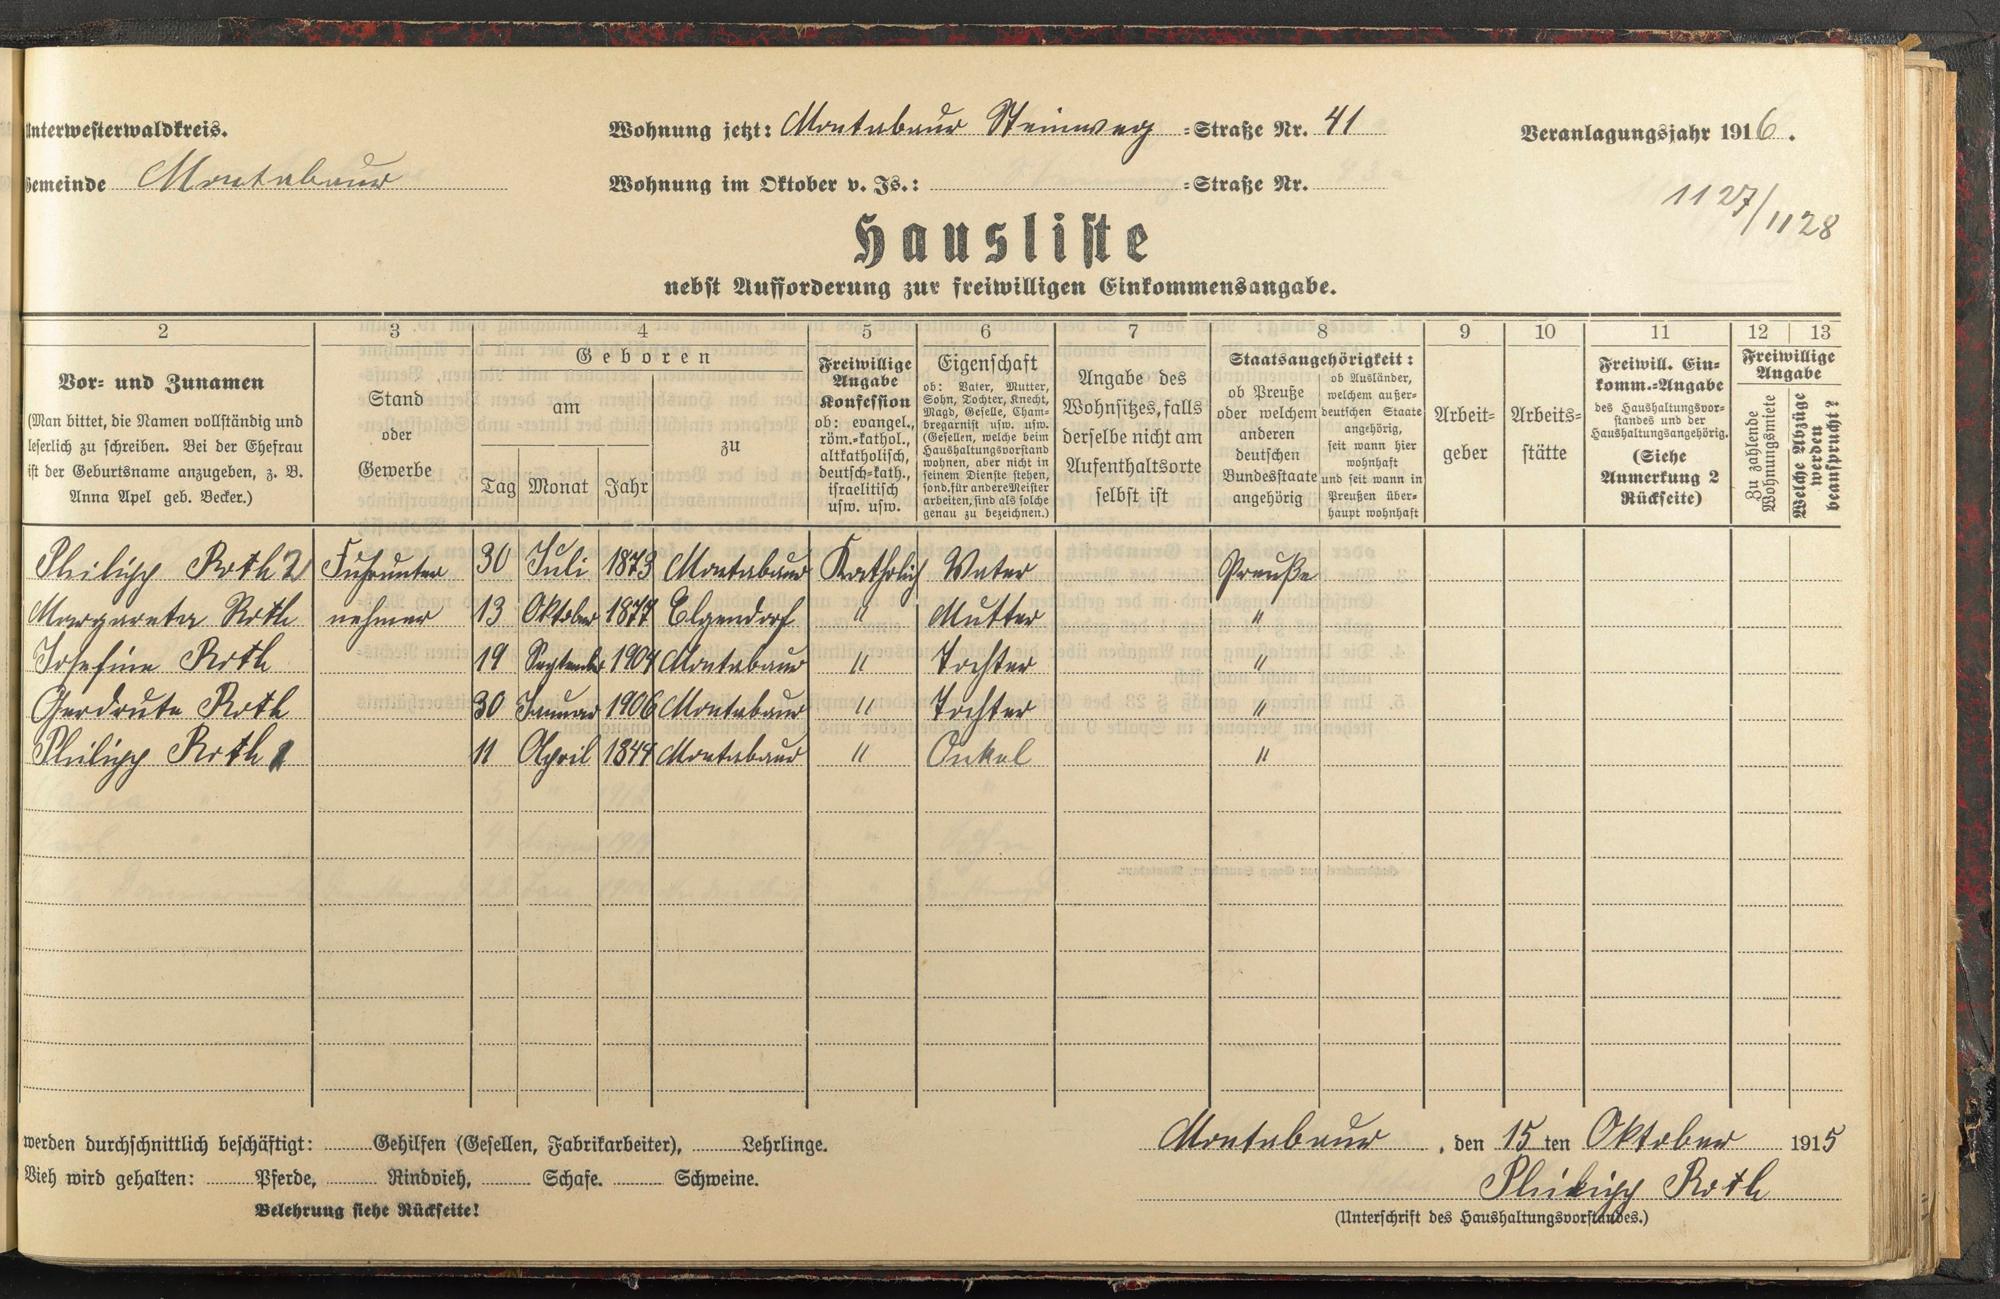 Unterwesterwaldkreis.
Wohnung jetzt: Montabaur Steinweg =Straße Nr. 41
Veranlagungsjahr 1916.
Gemeinde Montabaur
Wohnung im Oktober v. Js.: =Straße Nr.
1127/1128
Hausliste
nebst Aufforderung zur freiwilligen Einkommensangabe.
2 3 4 5 6 7 8 9 10 11 12 13
Vor- und Zunamen
(Man bittet, die Namen vollständig und
leserlich zu schreiben. Bei der Ehefrau
ist der Geburtsname anzugeben, z. B.
Anna Apel geb. Becker.)
Stand
oder
Gewerbe
Geboren
am
Tag Monat Jahr
zu
Freiwillige
Angabe
Konfession
ob: evangel.,
röm.-kathol.,
altkatholisch,
deutsch-kath.,
israelitisch
usw. usw.
Eigenschaft
ob: Vater, Mutter,
Sohn, Tochter, Knecht,
Magd, Geselle, Cham-
bregarnist usw. usw.
(Gesellen, welche beim
Haushaltungsvorstand
wohnen, aber nicht in
seinem Dienste stehen,
sond. für andere Meister
arbeiten, sind als solche
genau zu bezeichnen.)
Angabe des
Wohnsitzes, falls
derselbe nicht am
Aufenthaltsorte
selbst ist
Staatsangehörigkeit:
ob Preuße
oder welchem
anderen
deutschen
Bundesstaate
angehörig
ob Ausländer,
welchem außer-
deutschen Staate
angehörig,
seit wann hier
wohnhaft
und seit wann in
Preußen über-
haupt wohnhaft
Arbeit-
geber
Arbeits-
stätte
Freiwill. Ein-
komm.-Angabe
des Haushaltungsvor-
standes und der
Haushaltungsangehörig.
(Siehe
Anmerkung 2
Rückseite)
Freiwillige
Angabe
Zu zahlende
Wohnungsmiete
Welche Abzüge
werden
beansprucht?
Philipp Roth 2 Fuhrunter 30 Juli 1873 Montabaur Katholich Vater Preuße
Margareta Roth nehmer 13 Oktober 1877 Elgendorf " Mutter "
Josefine Roth 19 September 1904 Montabaur " Tochter "
Gerdrute Roth 30 Januar 1906 Montabaur " Tochter "
Philipp Roth 1 11 April 1844 Montabaur " Onkel "
werden durchschnittlich beschäftigt: Gehilfen (Gesellen, Fabrikarbeiter), Lehrlinge.
Montabaur, den 15ten Oktober 1915
Vieh wird gehalten: Pferde, Rindvieh, Schafe. Schweine.
Philipp Roth
Belehrung siehe Rückseite!
(Unterschrift des Haushaltungsvorstandes.)